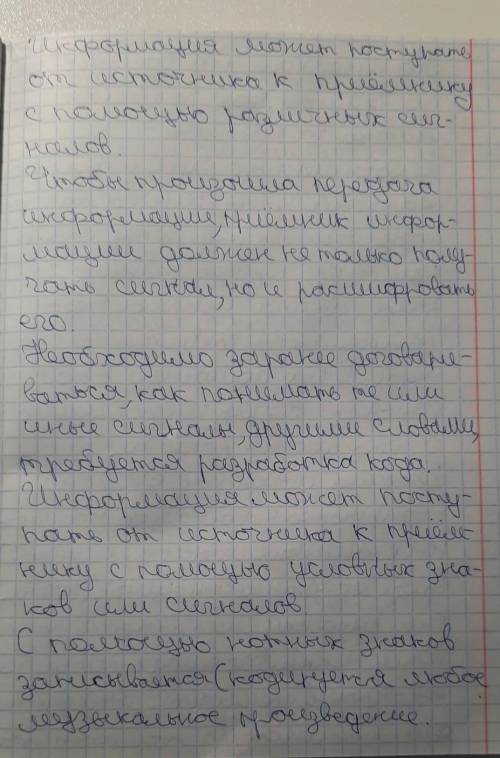 Информация может поступать
от источника к приёмнику
с помощью различных сиг-
налов.
Чтобы произошла передача
информации, приёмник инфор-
мации должен не только полу-
чать сигнал, но и расшифровать
его.
Необходимо заранее договари-
ваться, как понимать те или
иные сигналы, другими словами,
требуется разработка кода.
Информация может посту-
пать от источника к приём-
нику с помощью условных зна-
ков или сигналов
С помощью нотных знаков
записывается (кодируется любое
музыкальное произведение.